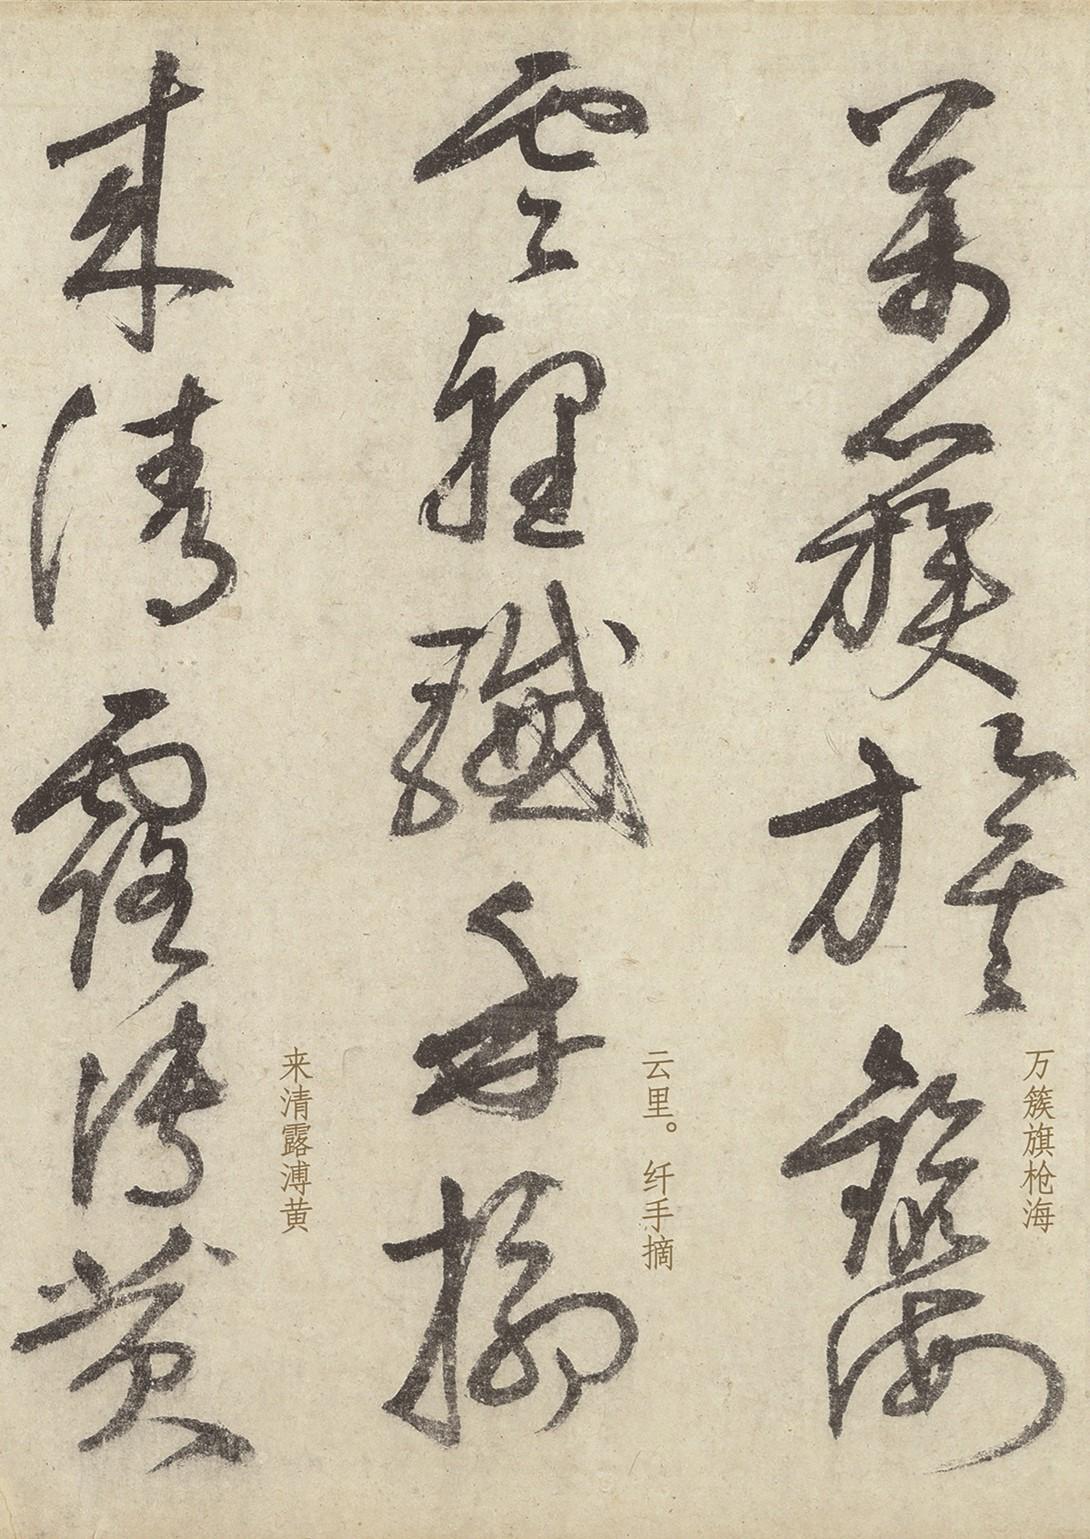 萬簇旗鎗海
万簇旗枪海
雲裡纖手摘
云里。纤手摘
来清露漙黄
来清露漙黄